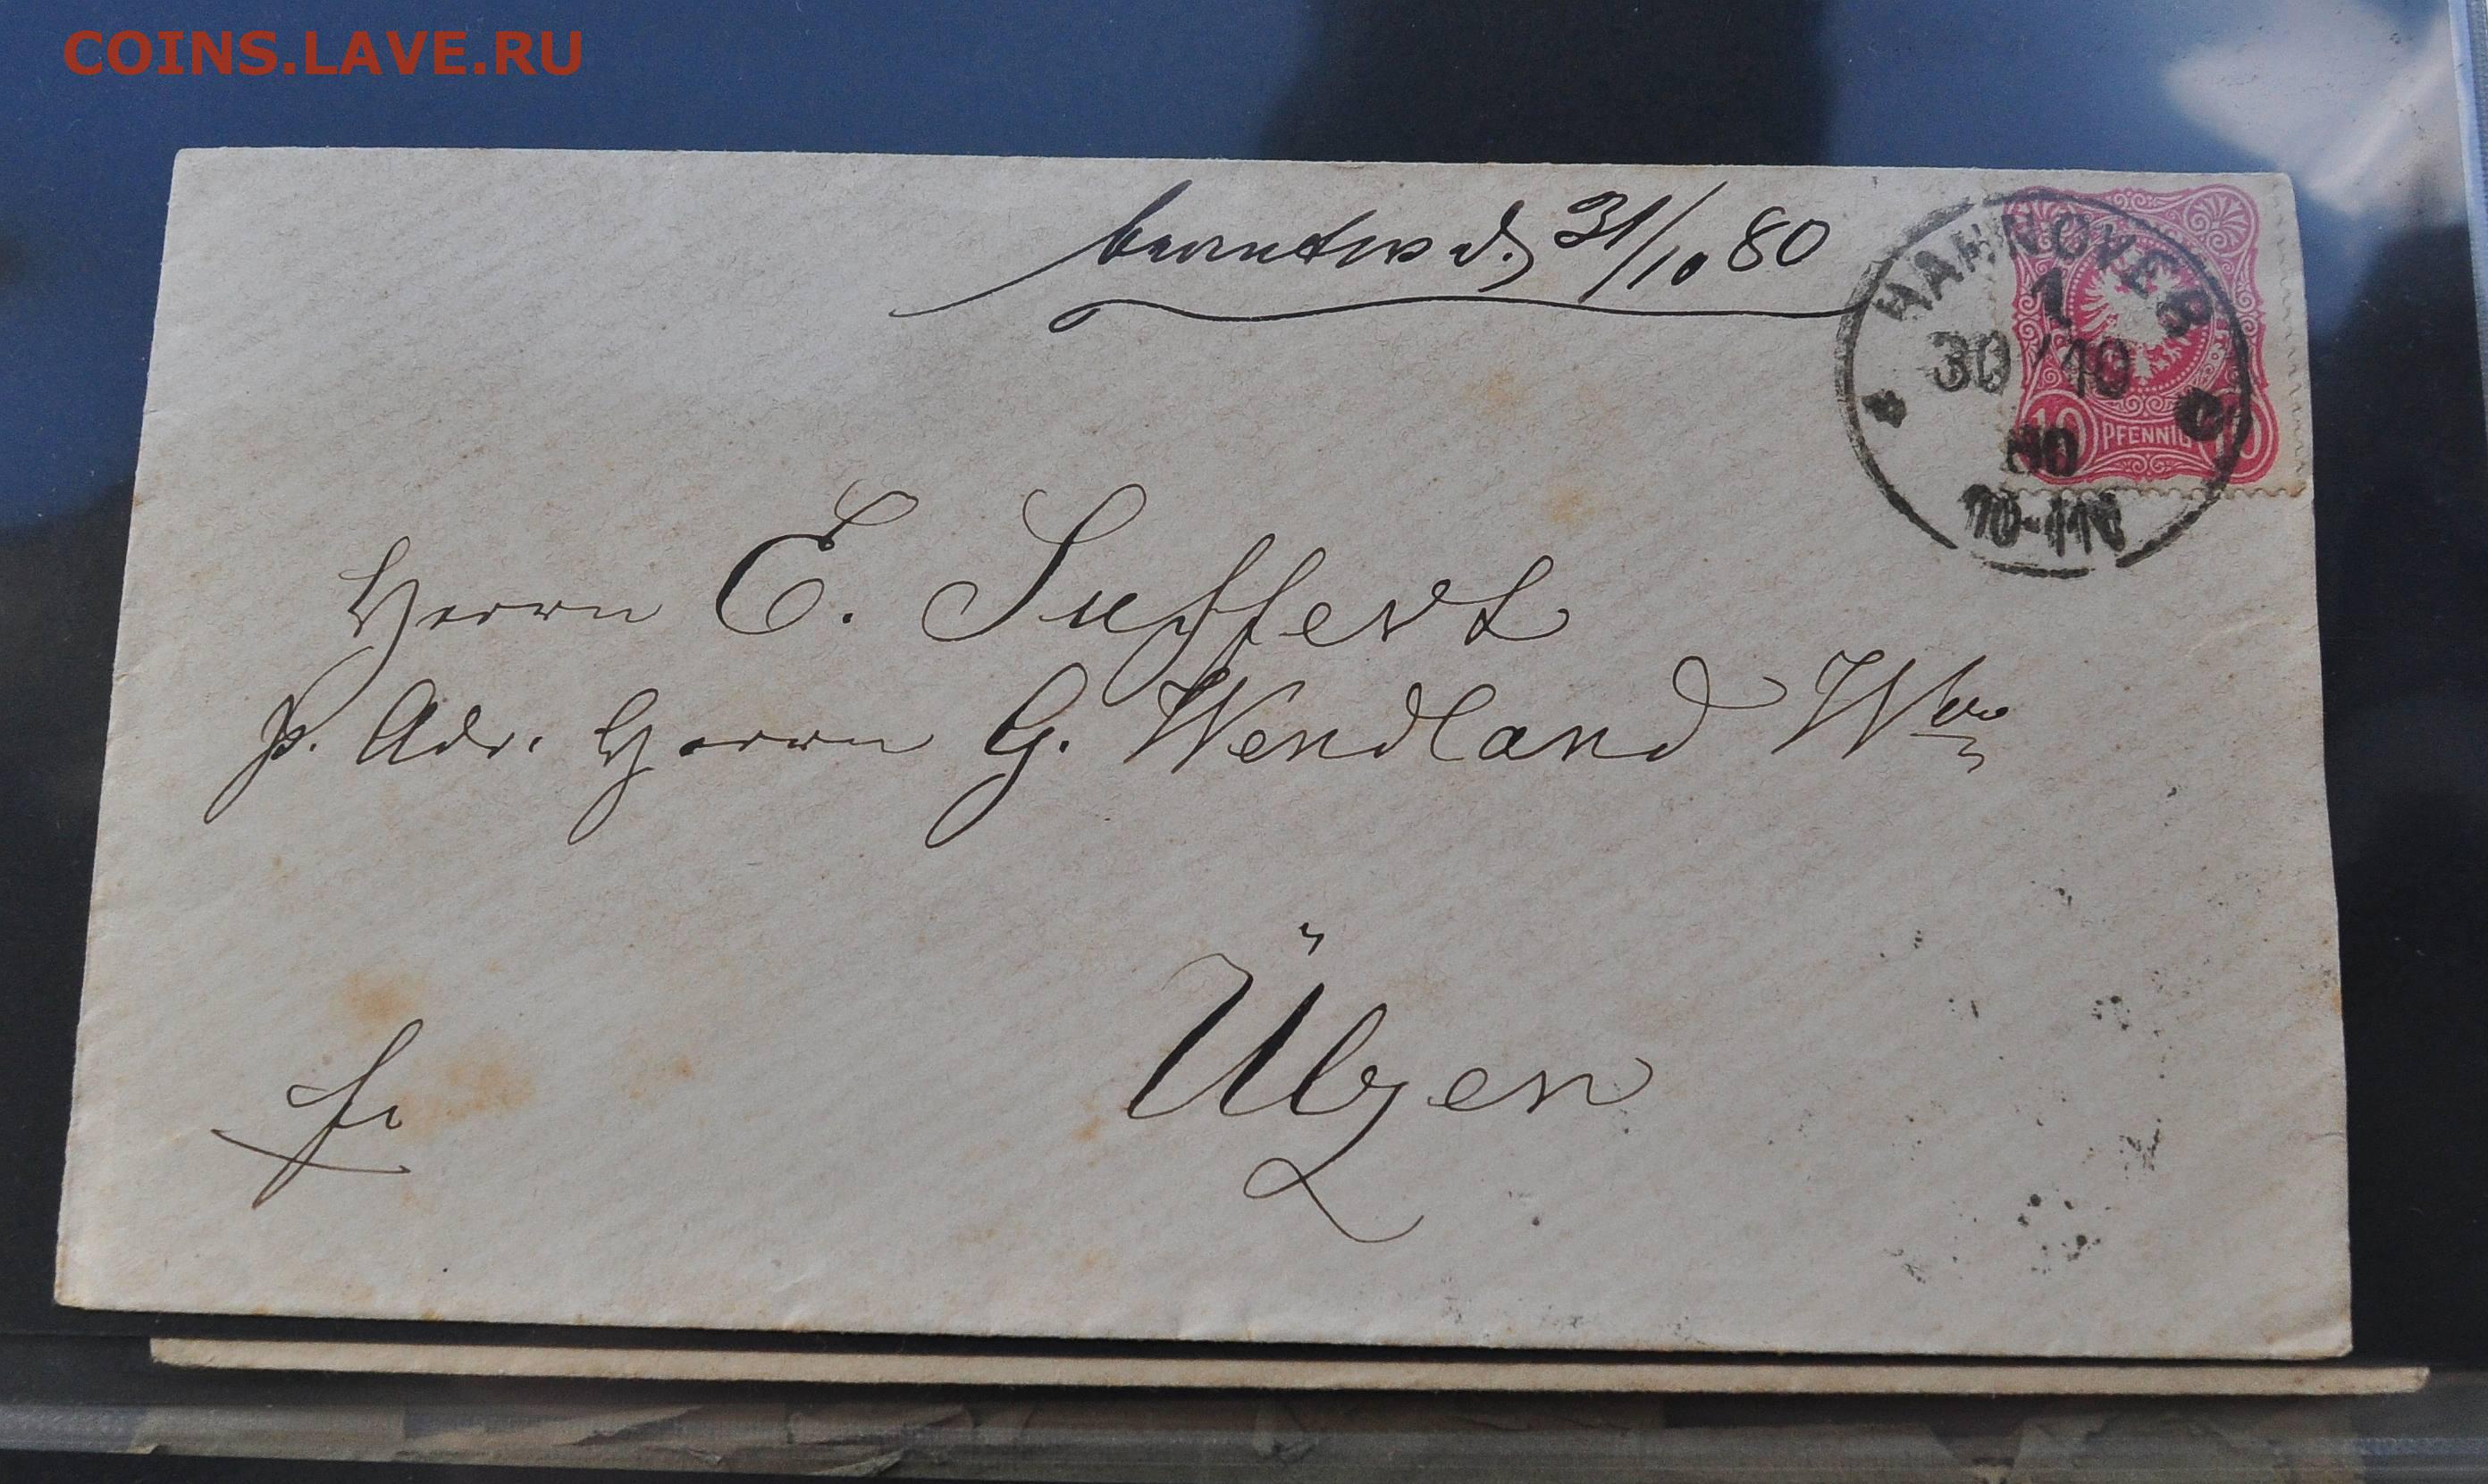 COINS.LAVE.RU
beantw d. 31/10 80
HANNOVER
1
30/10
80
10-11V
10 PFENNIG 10
Herrn E. Suffert
p. Adr. Herrn G. Wendland Wwe
Ülzen
fr